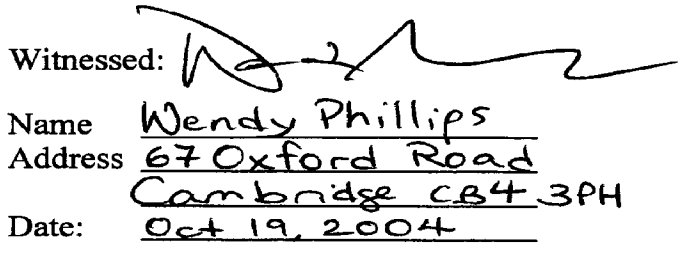 Witnessed:
Name Wendy Phillips
Address 67 Oxford Road
Cambridge CB4 3PH
Date: Oct 19, 2004